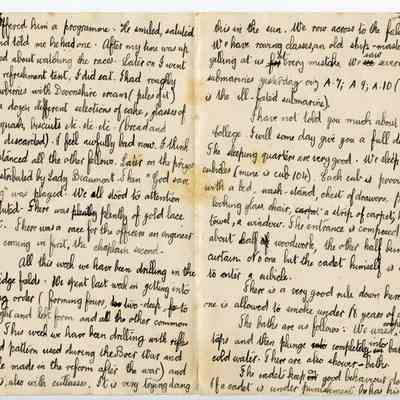 offered him a programme. He smiled, saluted
and told me he had one. After my time was up
about watching the races. Later on I went
refreshment tent, I did eat. I had roughly
strawberries with Devonshire cream (piles of it)
a dozen different selections of cake, glasses of
squash, biscuits etc. etc. etc. (bread and
discarded). I feel awfully bad now. I think
distanced all the other fellows. Later on the prizes
distributed by Lady Beaumont. Then "God save
" was played. We all stood to attention
saluted. There was plenty of gold lace
There was a race for the officers an engineer
coming in first, the chaplain second.
All this week we have been drilling in the
ridge folds. We spent last week in getting into
order (forming fours, two-deep, to
right and left form and all the other common
This week we have been drilling with rifles
old pattern used during the Boer War and
made in the reform after the war) and
, also with cutlasses. It is very tiring dang
this in the sun. We now across to the
We have roving classes, an old ship-master
yelling at us for every mistake. We saw several
submarines yesterday. only A.7; A 9; A.10 (
is the ill-fated submarine).
I have not told you much about
College. I will some day give you a full d
The sleeping quarters are very good. We sleep
cubicles (mine is cub 104). Each cub is provided
with a bed, wash-stand, chest of drawers,
looking glass, chair, a strip of carpet,
towel, a window. The entrance is composed
about half woodwork, the other half
curtain. No one but the cadet himself is
to enter a cubicle.
There is a very good rule down here
one is allowed to smoke under 18 years of a
The baths are as follows: We wash
taps and then plunge completely into
cold water. There are also shower-baths.
The cadets keep on good behaviour
If a cadet is under punishment he has his